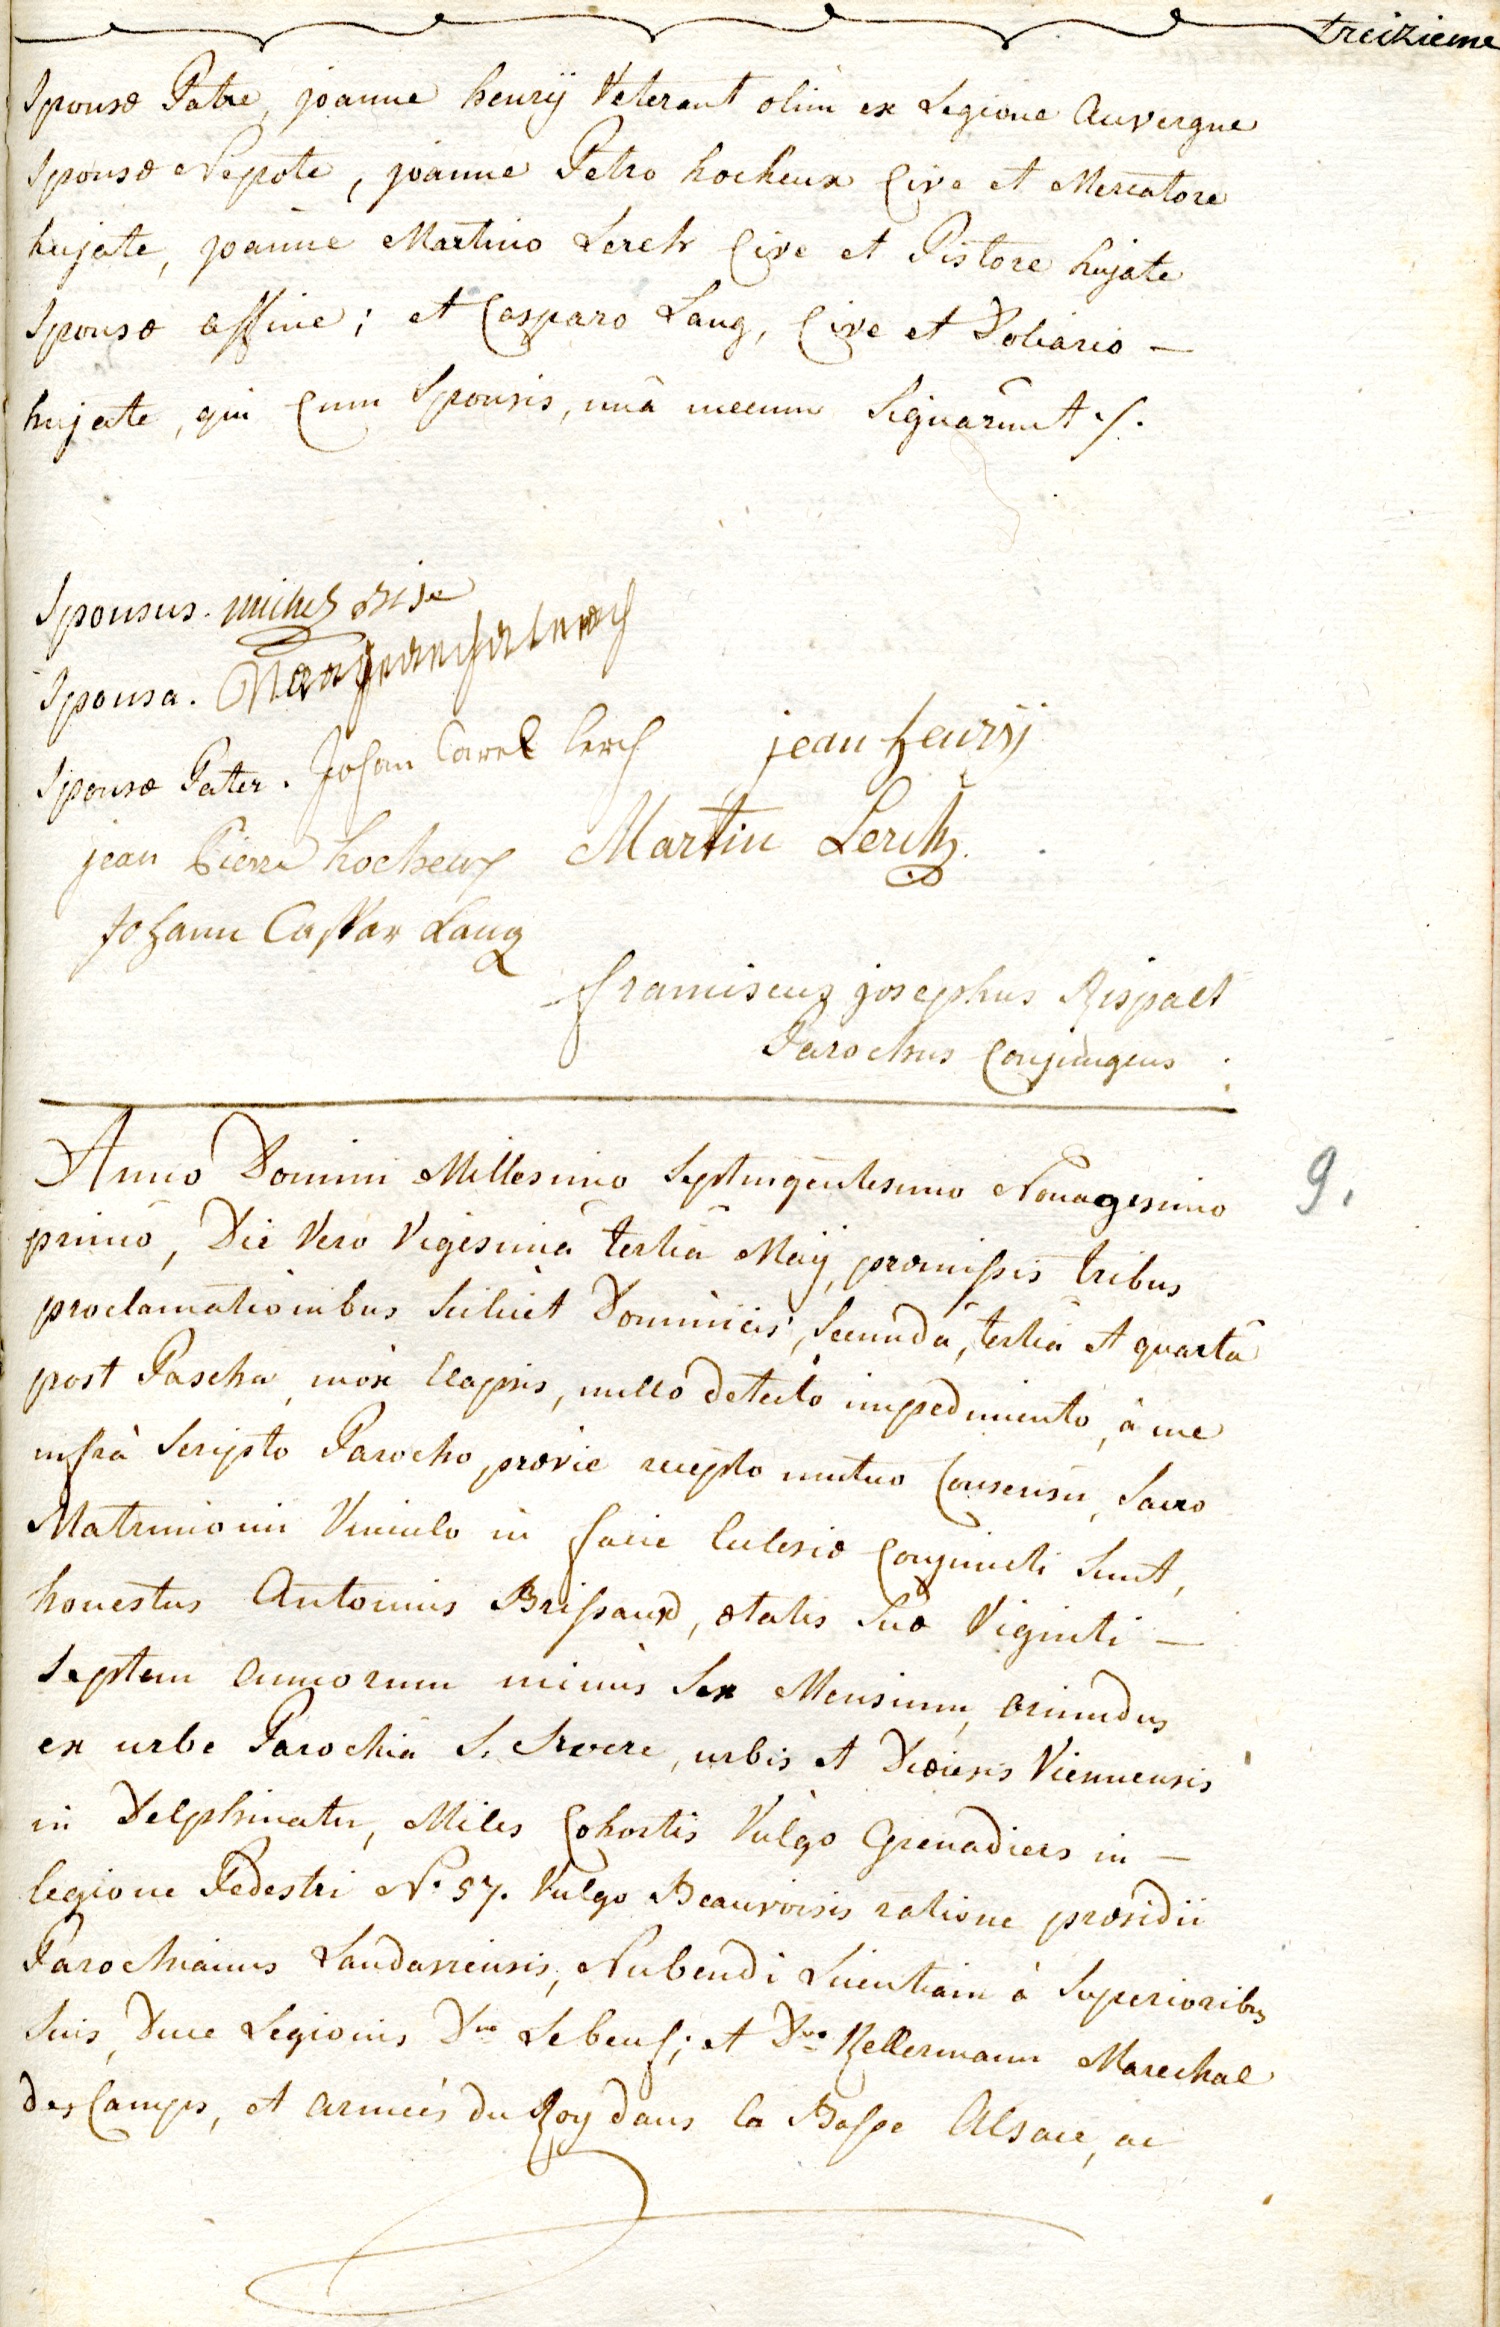 treizieme
Sponsæ Patre, joanne henrÿ Veterant olim ex Legione Auvergne
Sponsæ Nepote, joanne Petro hocheux Cive et Mercatore
hujate, joanne Martino Lerch Cive et Pistore hujate
Sponsæ affine; et Casparo Lang, Cive et Doliario —
hujate, qui Cum Sponsis, unà mecum Signarunt ./.
Sponsus. michel
Sponsa.
Sponsæ Pater. Johan Carel Lerch jean henrÿ
jean Pierre hocheux Martin Lerch
Johann Caspar Lang
franciscus josephus Rispalt
Parochus Conjungens
Anno Domini Millesimo Septingentesimo Nonagesimo
primo, Die Vero Vigesimâ tertiâ Maij, præmissis tribus
proclamationibus Scilicet Dominicis, Secundâ, tertiâ et quartâ
post Pascha, mox Elapsis, nullo detecto impedimento, à me
infrà Scripto Parocho, prævie recepto mutuo Consensu, Sacro
Matrimonii Vinculo in facie Ecclesiæ Conjuncti Sunt,
honestus Antonius Brissaud, ætatis Suæ Viginti —
Septem annorum minùs Sex Mensium, oriundus
ex urbe Parochiâ S. Severe, urbis et Diœcesis Viennensis
in Delphinatu, Miles Cohortis Vulgo Grenadiers in —
legione Pedestri N.º 57. Vulgo Beauvoisis ratione præsidii
Parochianus Landaviensis, Nubendi Licentiam à Superioribus
Suis, Duce Legionis Dno Lebeuf; et Dno Kellermann Marechal
des Camps, et armées du Roy dans la Basse Alsace, ac
9.